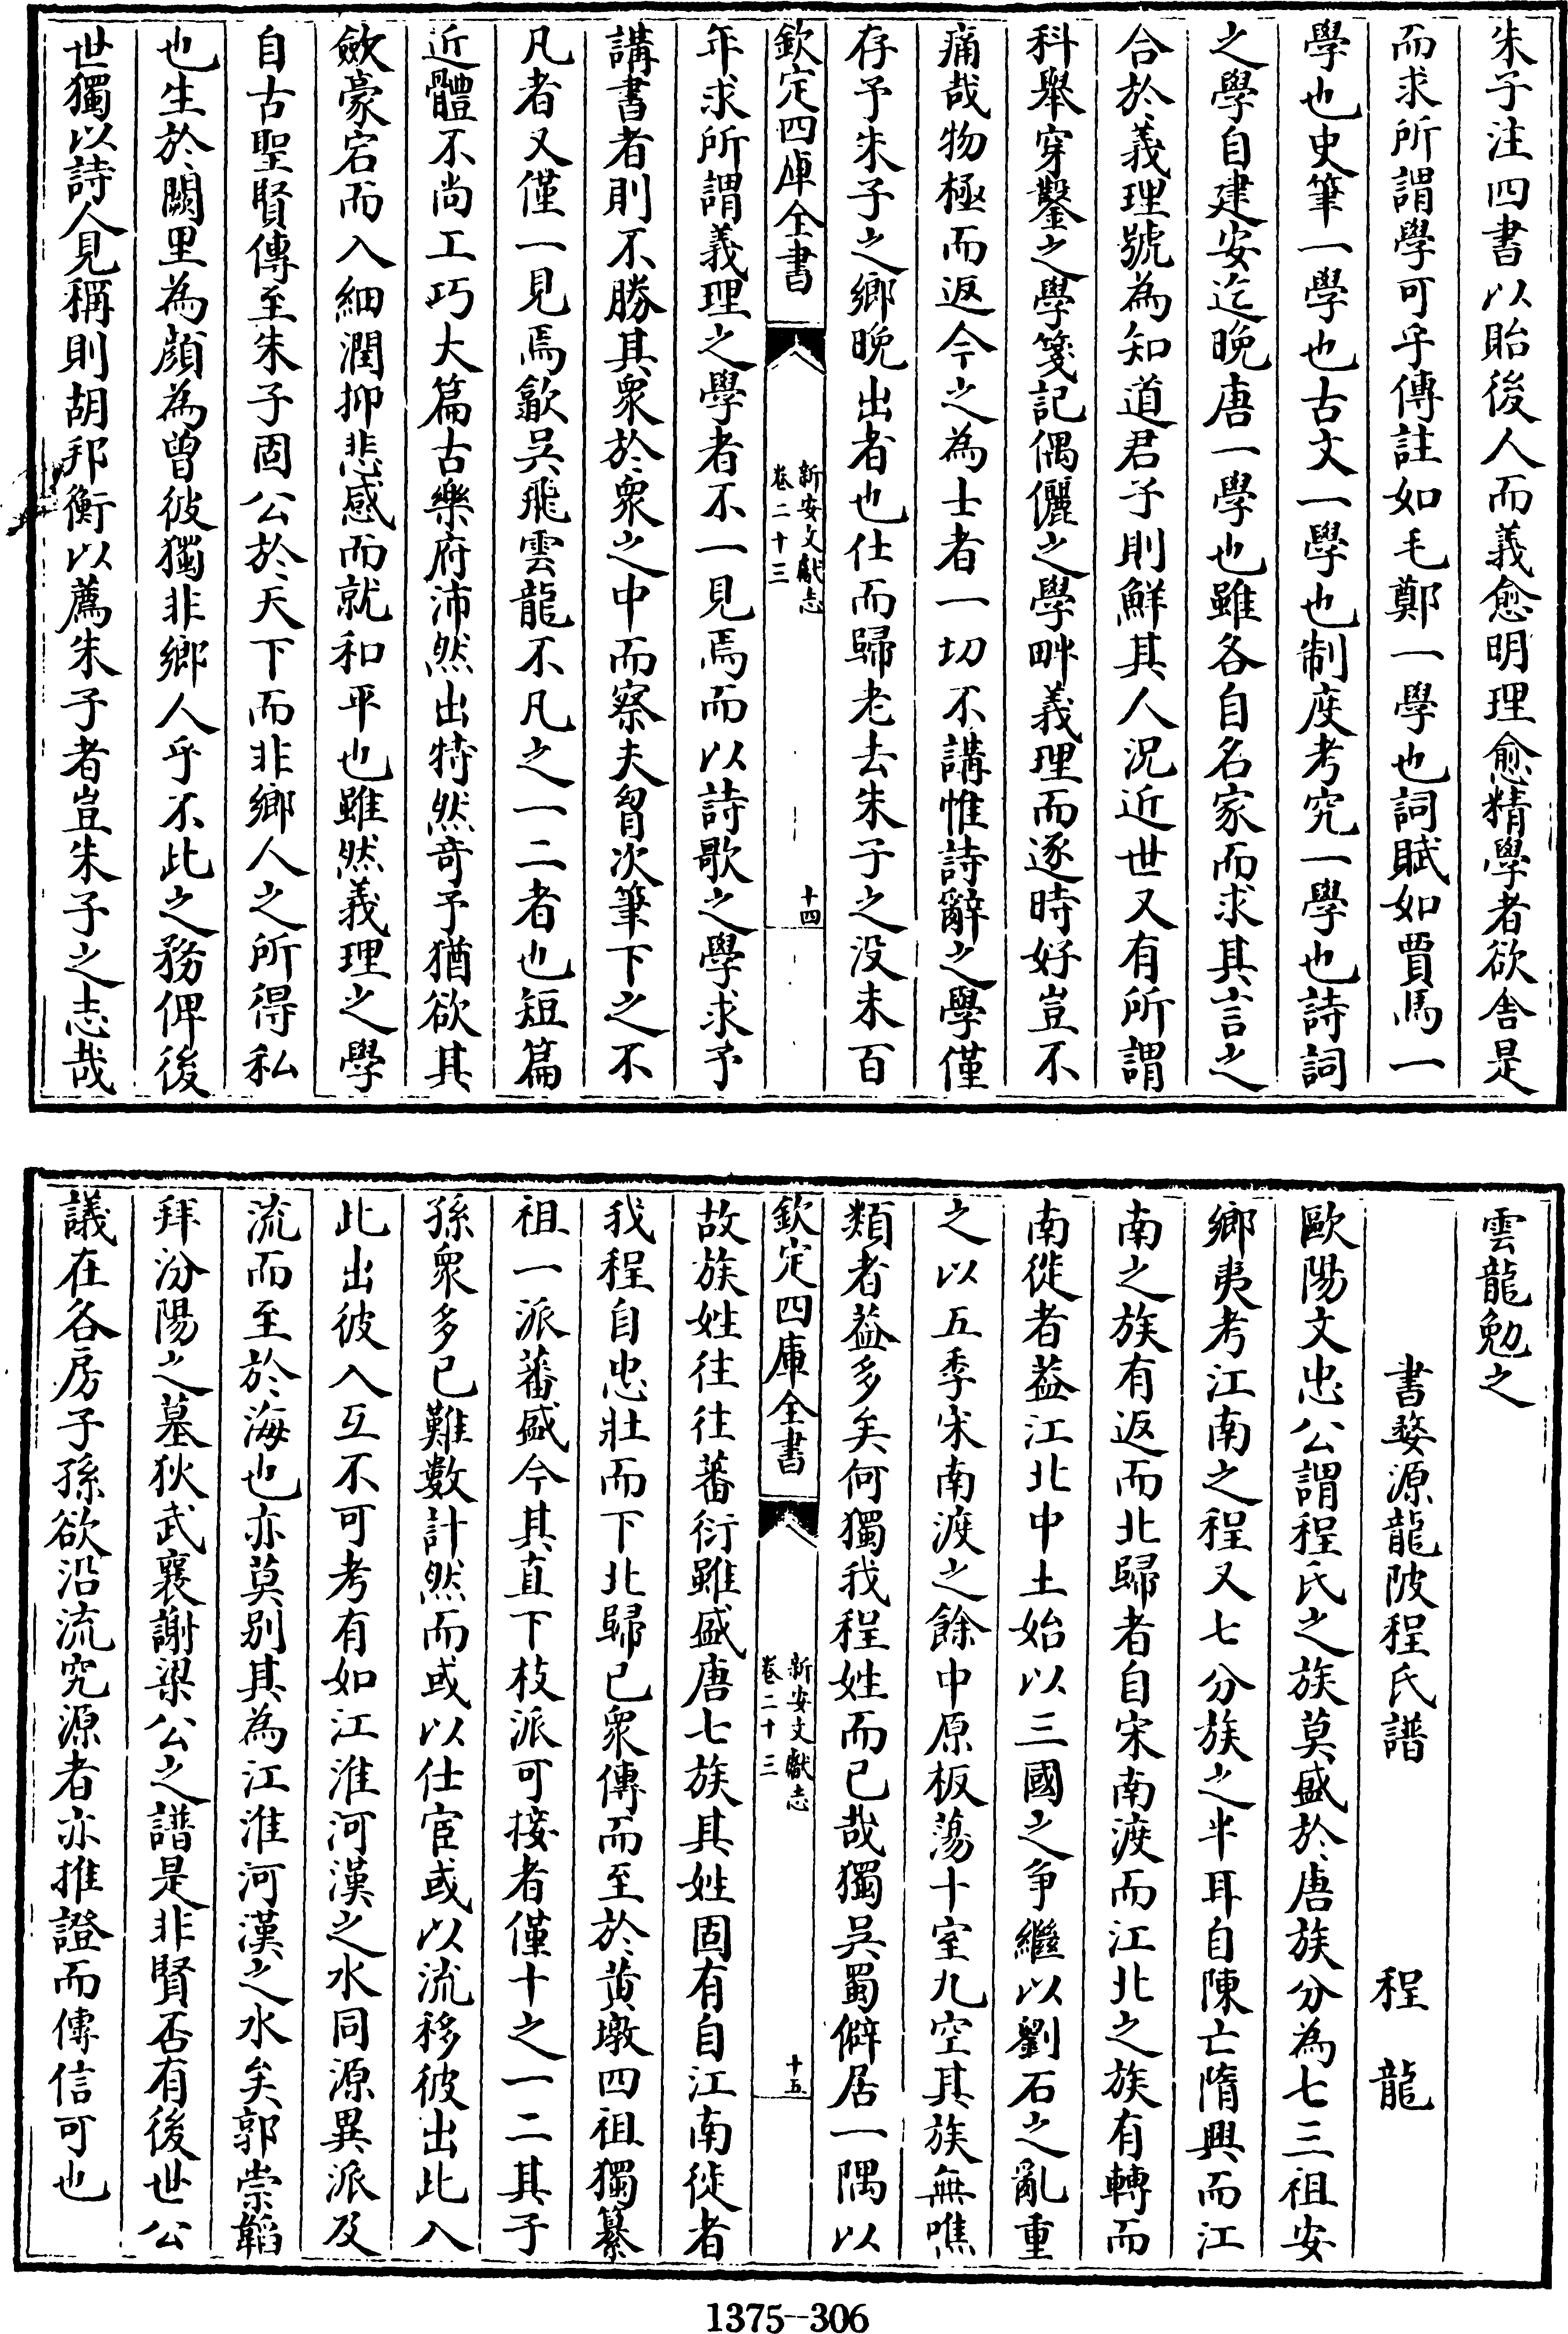 朱子注四書以貽後人而義愈明理愈精學者欲舍是
而求所謂學可乎傳註如毛鄭一學也詞賦如賈馬一
學也史筆一學也古文一學也制度考究一學也詩詞
之學自建安迄晚唐一學也雖各自名家而求其言之
合於義理號為知道君子則鮮其人況近世又有所謂
科舉穿鑿之學箋記偶儷之學畔義理而逐時好豈不
痛哉物極而返今之為士者一切不講惟詩辭之學僅
存予朱子之鄉晚出者也仕而歸老去朱子之没未百
欽定四庫全書
新安文獻志
卷二十三
十四
年求所謂義理之學者不一見焉而以詩歌之學求予
講書者則不勝其衆於衆之中而察夫胷次筆下之不
凡者又僅一見焉歙吳飛雲龍不凡之一二者也短篇
近體不尚工巧大篇古樂府沛然出特然竒予猶欲其
斂豪宕而入細潤抑悲感而就和平也雖然義理之學
自古聖賢傳至朱子固公於天下而非鄉人之所得私
也生於闕里為顔為曾彼獨非鄉人乎不此之務俾後
世獨以詩人見稱則胡邦衡以薦朱子者豈朱子之志哉
雲龍勉之
書婺源龍陂程氏譜
程龍
歐陽文忠公謂程氏之族莫盛於唐族分為七三祖安
鄉夷考江南之程又七分族之半耳自陳亡隋興而江
南之族有返而北歸者自宋南渡而江北之族有轉而
南徙者葢江北中土始以三國之爭繼以劉石之亂重
之以五季宋南渡之餘中原板蕩十室九空其族無噍
類者葢多矣何獨我程姓而已哉獨吳蜀僻居一隅以
欽定四庫全書
新安文獻志
卷二十三
十五
故族姓往往蕃衍雖盛唐七族其姓固有自江南徙者
我程自忠壯而下北歸已衆傳而至於黄墩四祖獨纂
祖一派蕃盛今其直下枝派可接者僅十之一二其子
孫衆多已難數計然而或以仕宦或以流移彼出此入
此出彼入互不可考有如江淮河漢之水同源異派及
流而至於海也亦莫别其為江淮河漢之水矣郭崇韜
拜汾陽之墓狄武襄謝梁公之譜是非賢否有後世公
議在各房子孫欲沿流究源者亦推證而傳信可也
1375-306